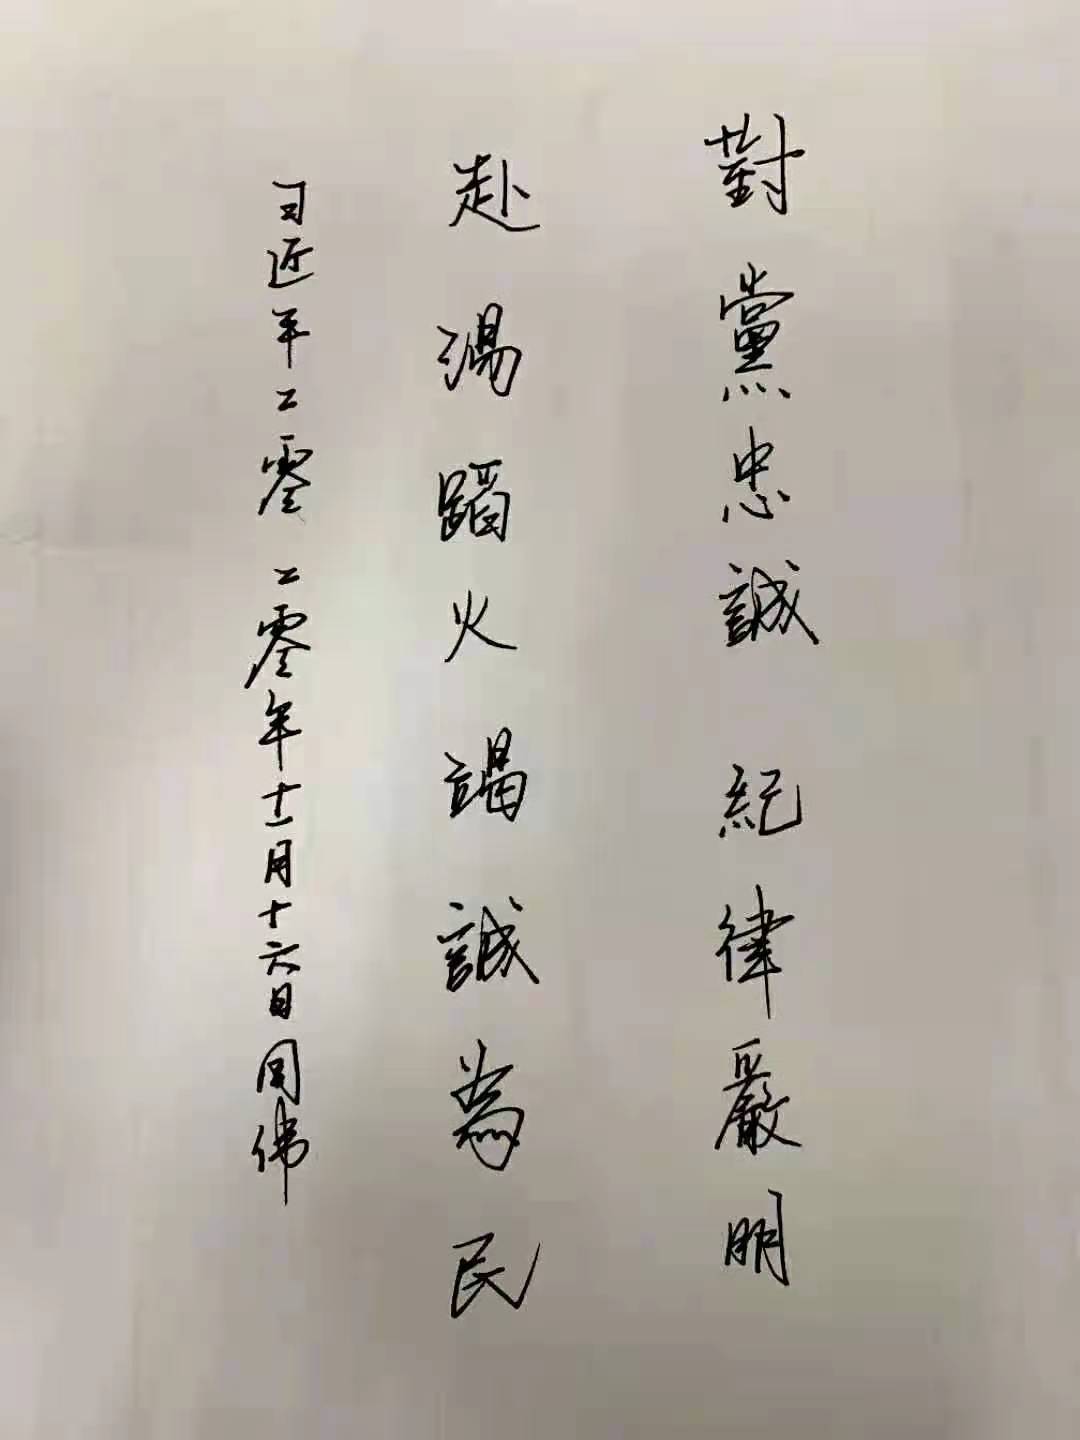 對黨忠誠 紀律嚴明
赴湯蹈火竭誠為民
习近平二零二零年十二月十六日